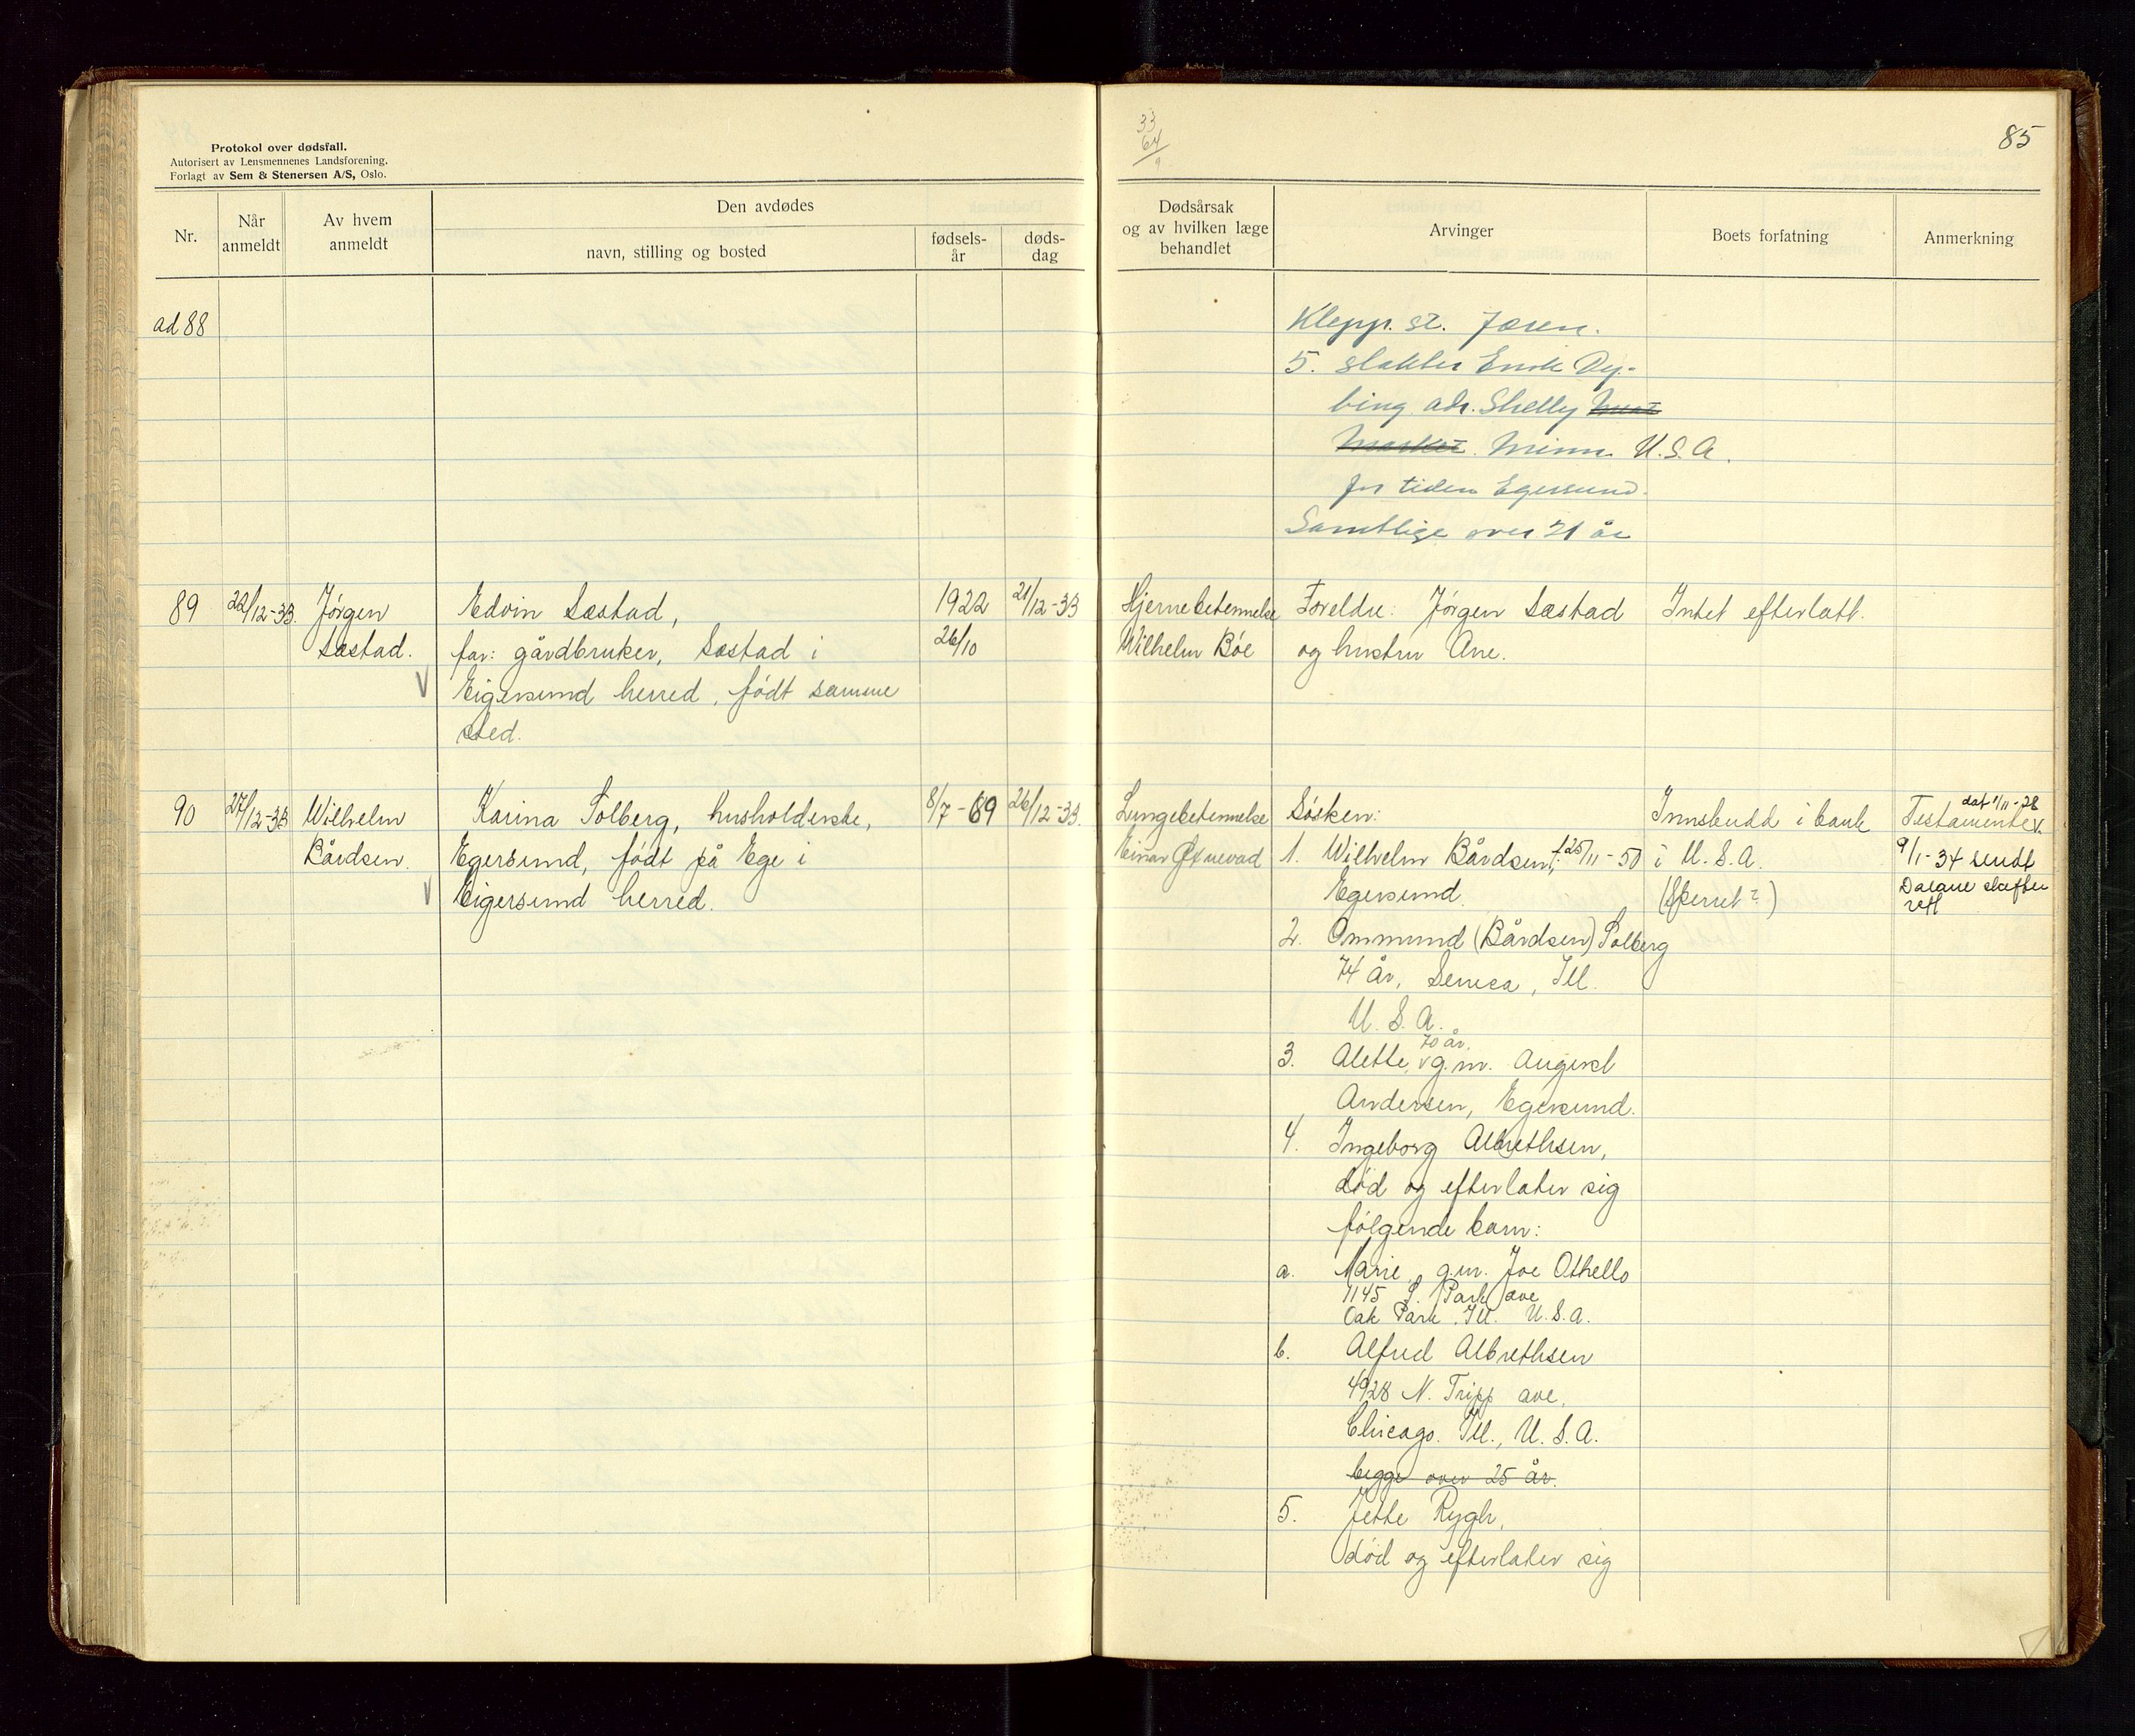 Protokol over dødsfall.
Autorisert av Lensmennenes Landsforening.
Forlagt av Sem & Stenersen A/S, Oslo.
33
64
9
85
Nr.
Når anmeldt
Av hvem anmeldt
Den avdødes
navn, stilling og bosted
fødsels-år
døds-dag
Dødsårsak og av hvilken læge behandlet
Arvinger
Boets forfatning
Anmerkning
ad 88
Klepp. st. Jæren.
5. Slakter Enok Dy-
bing adr. Shelly
Market. Minn. U.S.A.
for tiden Egersund.
Samtlige over 21 år
89
22/12-33.
Jørgen
Sæstad.
Edvin Sæstad,
far: gårdbruker, Sæstad i
Eigersund herred, født samme
sted.
1922
26/10
21/12-33
Hjernebetennelse
Wilhelm Bøe
Foreldre: Jørgen Sæstad
og hustru Ane.
Intet efterlatt.
90
27/12-33
Wilhelm
Bårdsen.
Karina Solberg, husholderske,
Egersund, født på Ege i
Eigersund herred.
8/7-69
26/12-33.
Lungebetennelse
Einar
Søsken:
1. Wilhelm Bårdsen, f. 25/11-50
Egersund.
2. Ommund (Bårdsen) Solberg
74 år, Seneca, Ill.
U. S. A.
70 år.
3. Alette, g.m. August
Andersen, Egersund.
4. Ingeborg Albrethsen,
død og efterlater sig
følgende barn:
a. Marie, g.m. Joe Othello
1145 S. Park ave
Oak Park. Ill. U.S.A.
b. Alfred Albrethsen
4928 N. Tripp ave.
Chicago. Ill., U. S. A.
begge over 25 år.
5. Jette Rygh,
død og efterlater sig
Innskudd i bank
i U. S. A.
(Sperret?)
dat 1/11-28
Testamente
9/1-34 sendt
Dalane skifte
rett